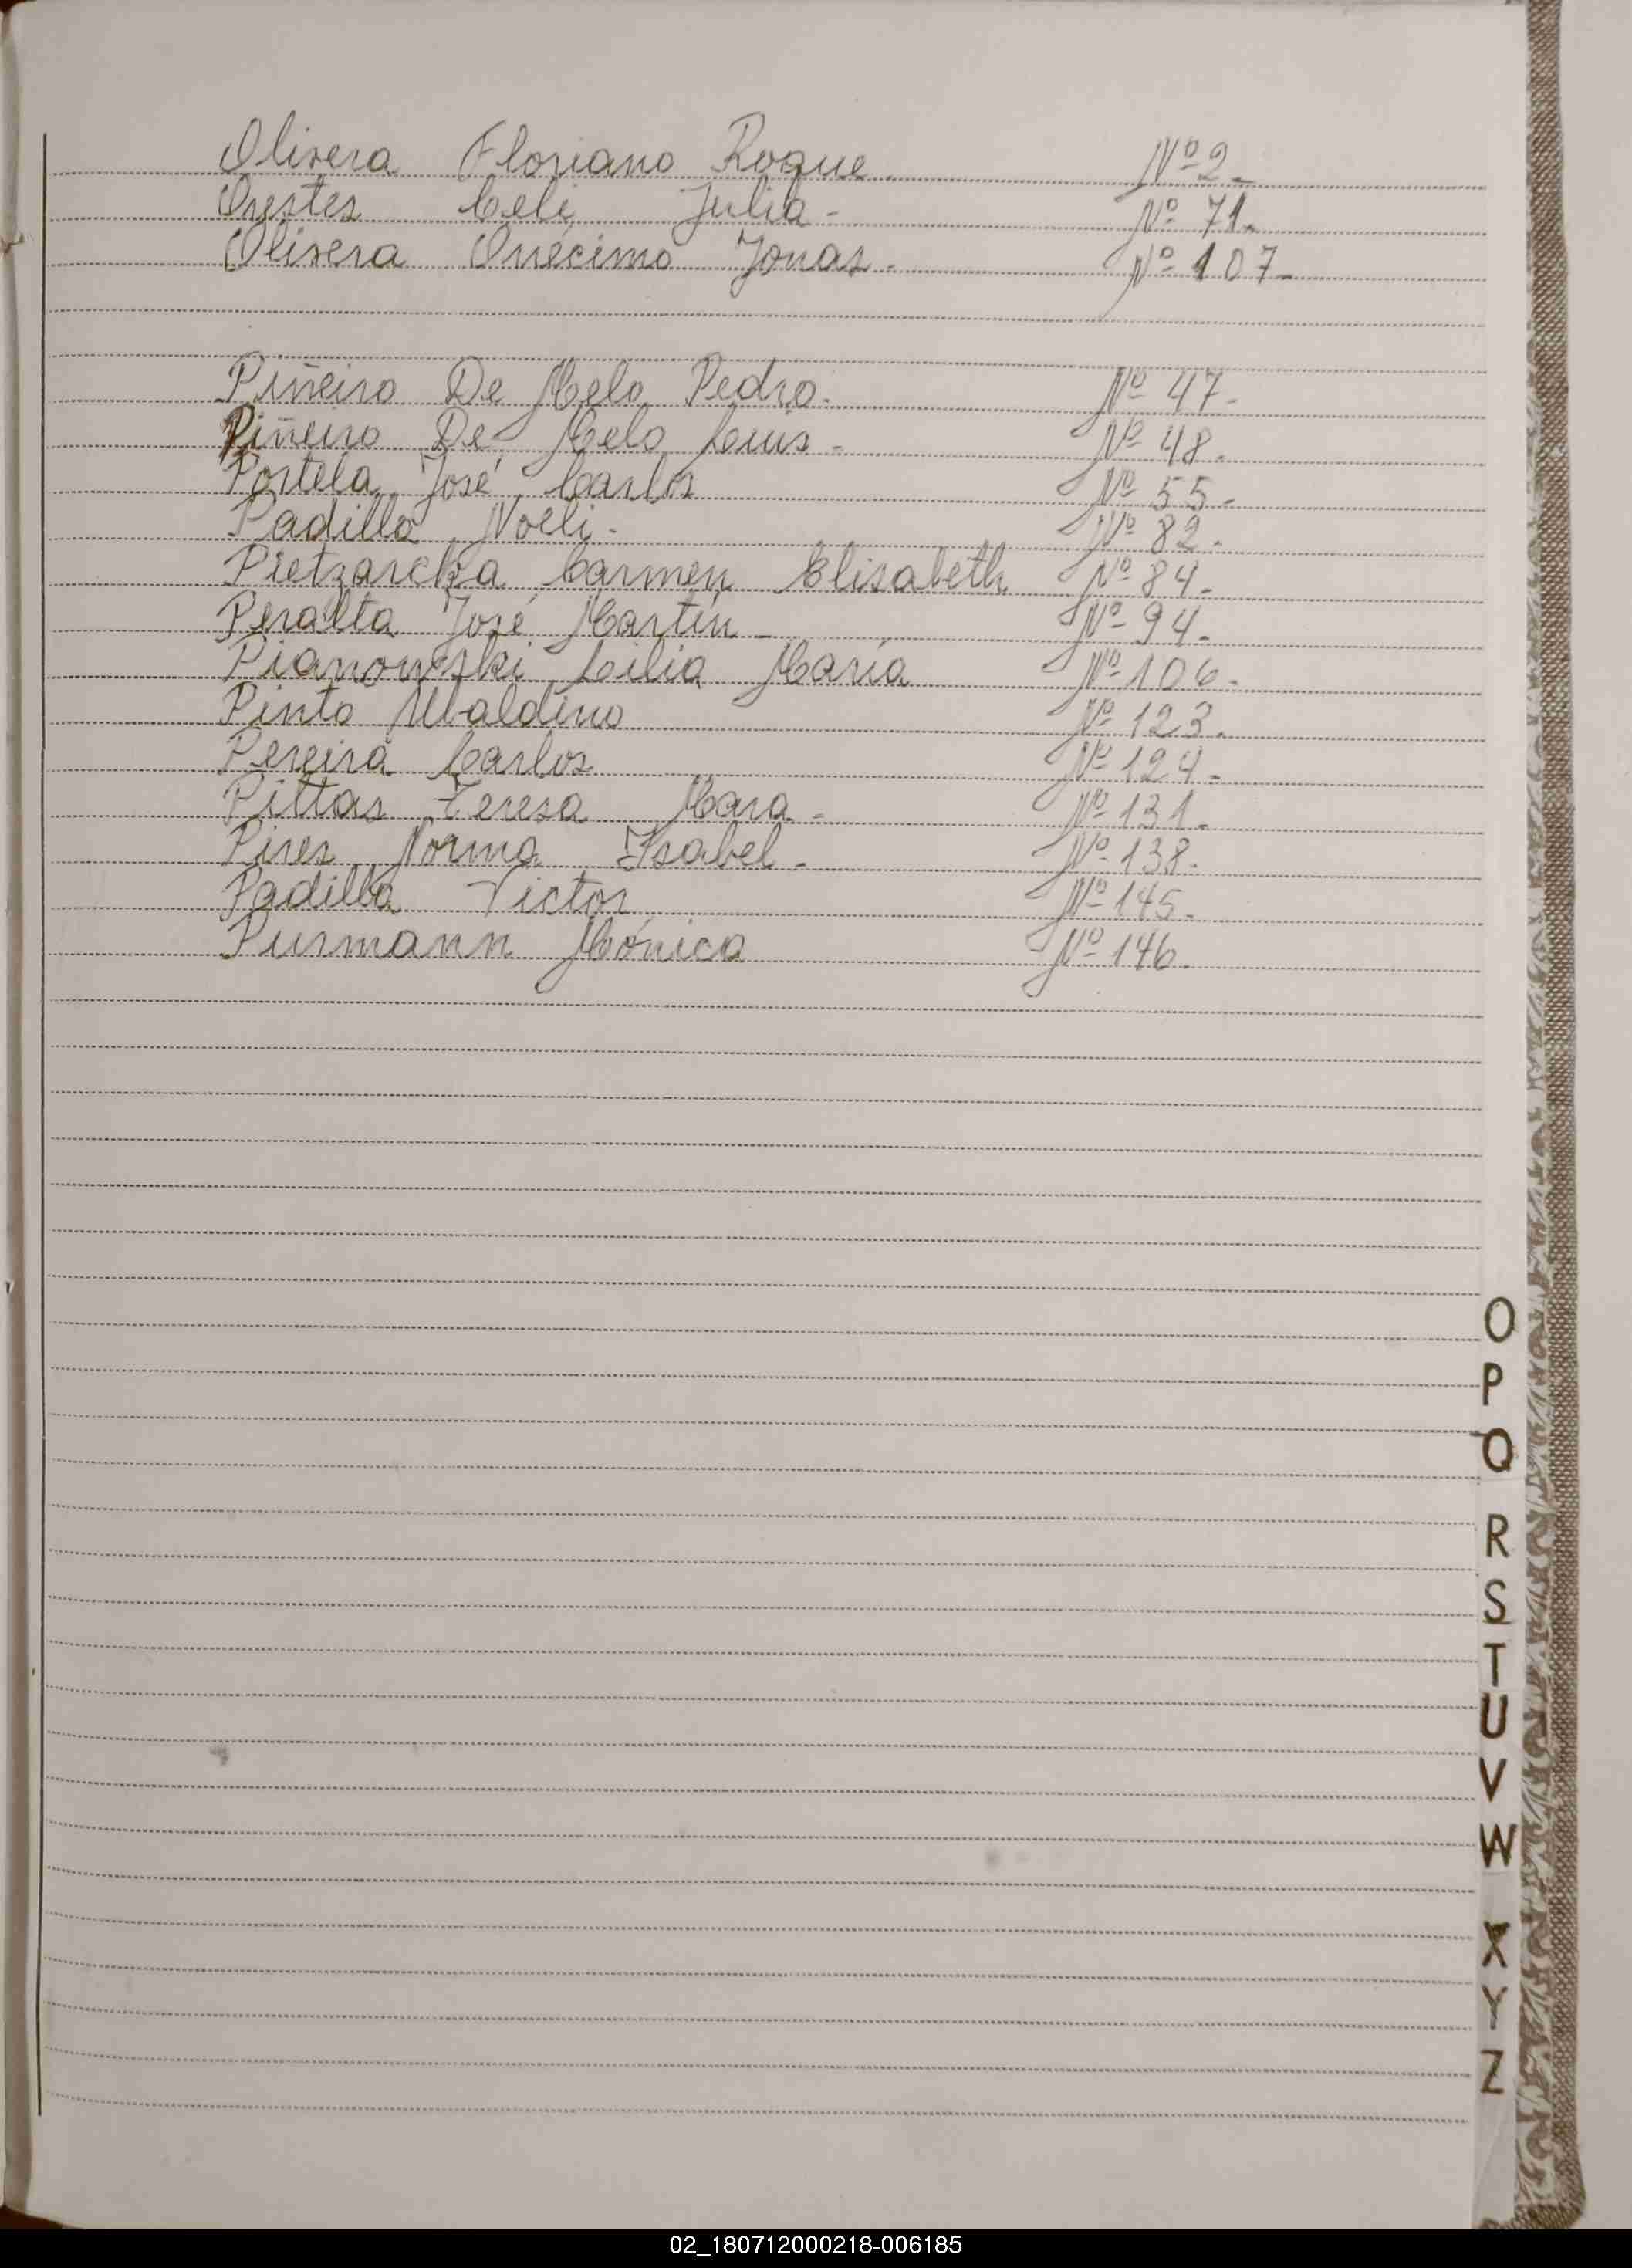 Olivera Floriano Roque. Nº 2.
Orestes Celi Julia. Nº 71.
Olivera Onécimo Jonas. Nº 107.
Piñeiro De Melo Pedro. Nº 47.
Piñeiro De Melo Luis. Nº 48.
Portela José Carlos Nº 55.
Padilla Noeli. Nº 82.
Pietzarcka Carmen Elisabeth Nº 84.
Peralta José Martín Nº 94.
Pianowski Lilia María Nº 106.
Pinto Ubaldino Nº 123.
Pereira Carlos Nº 124.
Pittas Teresa Mara. Nº 131.
Pires Norma Isabel. Nº 138.
Padilla Victor Nº 145.
Purmann Mónica Nº 146.
O
P
Q
R
S
T
U
V
W
X
Y
Z
02_180712000218-006185